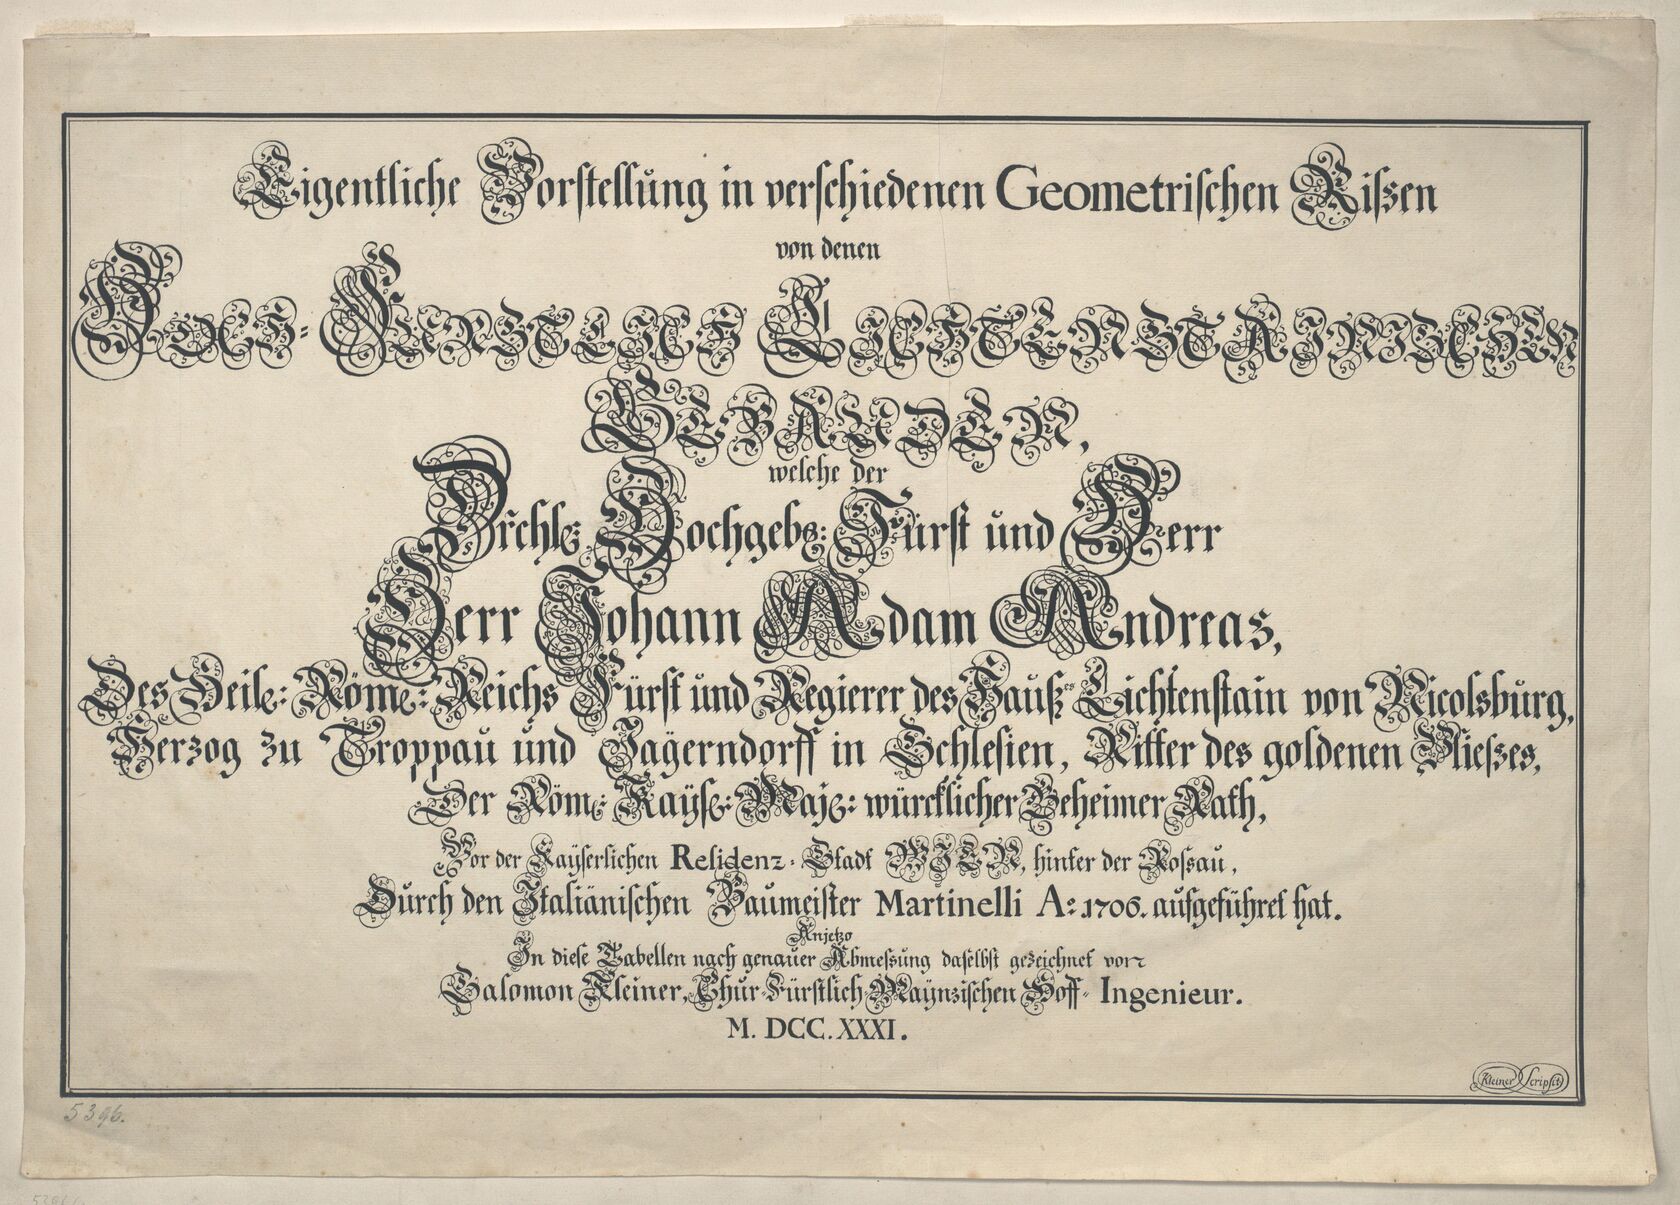 Eigentliche Vorstellung in verschiedenen Geometrischen Rißen
von denen
HOCH-FÜRSTLICH LICHTENSTAINISCHEN
GEBÄUDEN,
welche der
Drchls. Hochgebs: Fürst und Herr
Herr Johann Adam Andreas,
Des Heil: Röm: Reichs Fürst und Regierer des Hauß Lichtenstain von Nicolsburg,
Herzog zu Troppau und Jägerndorff in Schlesien, Ritter des goldenen Vließes,
Der Röm: Kayß: Maj: würcklicher Geheimer Rath,
Vor der Kayserlichen Residenz-Stadt WIEN, hinter der Roßau,
Durch den Italiänischen Baumeister Martinelli Aº. 1706. aufgeführet hat.
Anjetzo
In diese Tabellen nach genauer Abmeßung daselbst gezeichnet von
Salomon Kleiner, Chur-Fürstlich-Maynzischen Hoff-Ingenieur.
M. DCC. XXXI.
Kleiner Scripsit
5396.